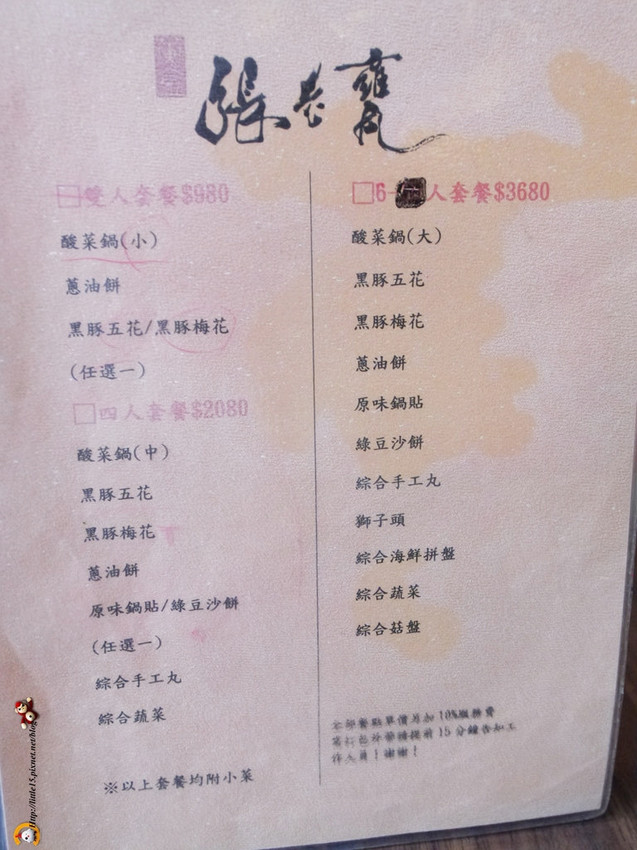 張老甕
雙人套餐$980
酸菜鍋(小)
蔥油餅
黑豚五花/黑豚梅花
(任選一)
四人套餐$2080
酸菜鍋(中)
黑豚五花
黑豚梅花
蔥油餅
原味鍋貼/綠豆沙餅
(任選一)
綜合手工丸
綜合蔬菜
※以上套餐均附小菜
6-人套餐$3680
酸菜鍋(大)
黑豚五花
黑豚梅花
蔥油餅
原味鍋貼
綠豆沙餅
綜合手工丸
獅子頭
綜合海鮮拼盤
綜合蔬菜
綜合菇盤
本部餐點單價另加10%服務費
需打包外帶請提前15分鐘告知工
作人員！謝謝！
http://little15.pixnet.net/blog